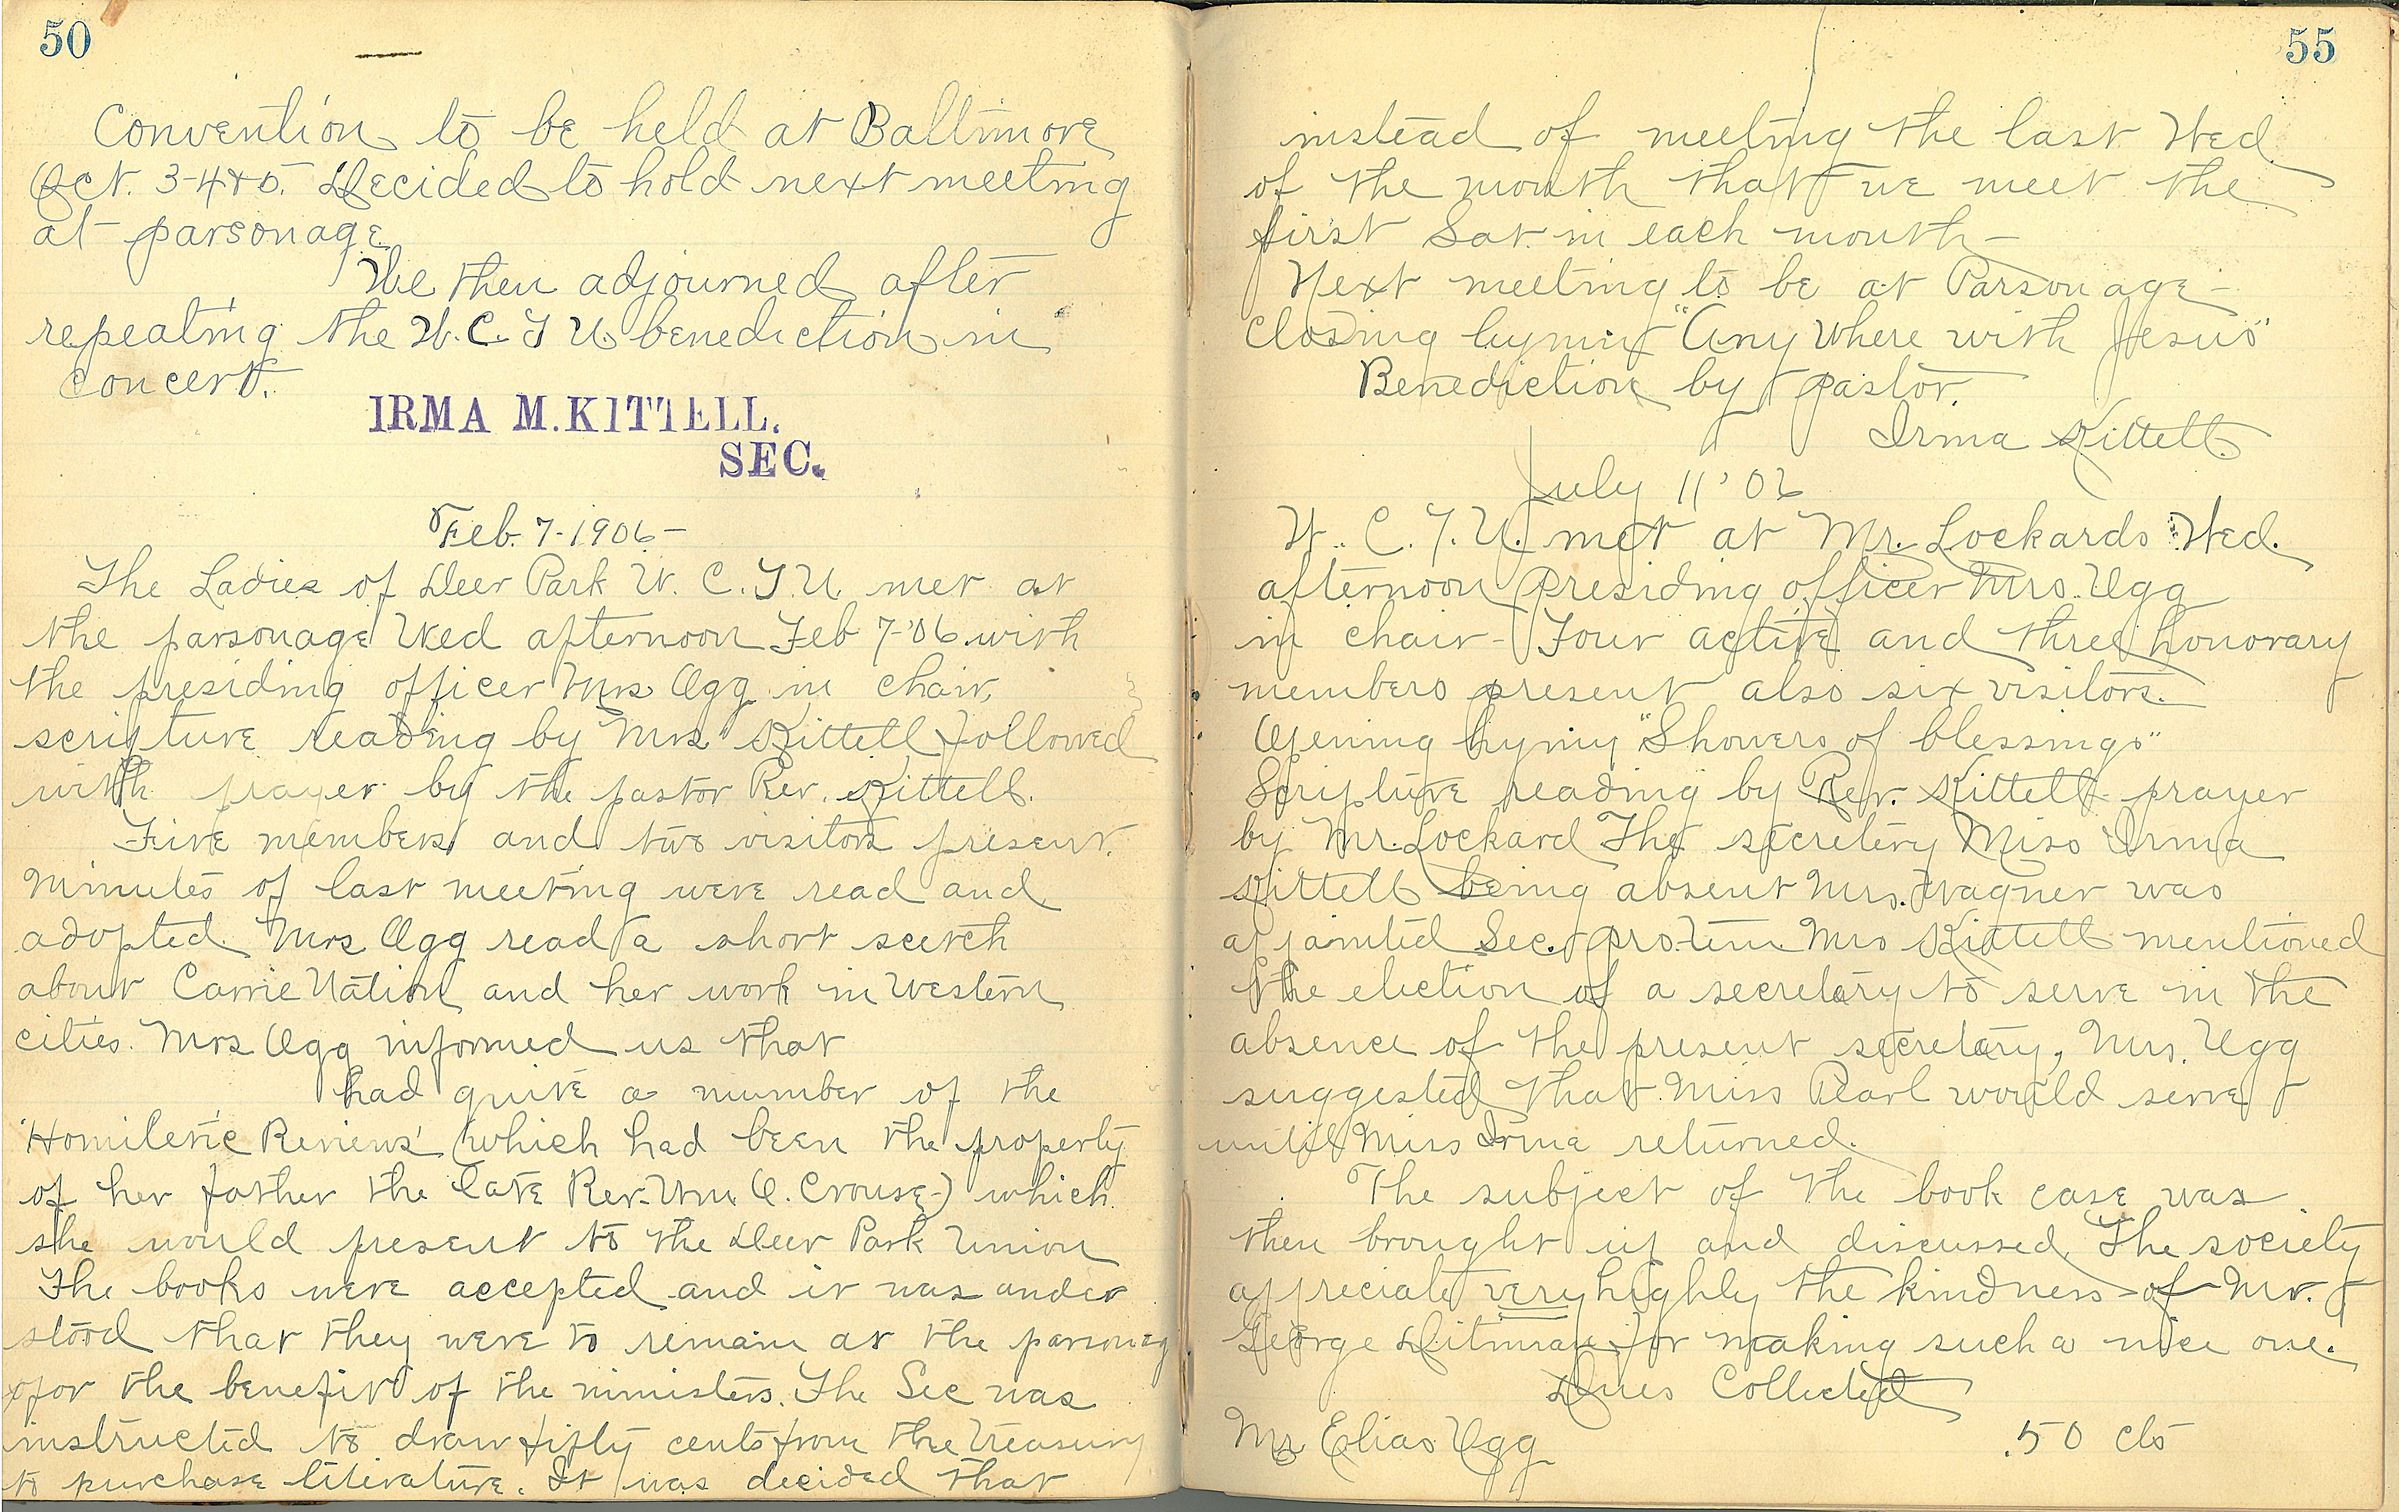 50
Convention to be held at Baltimore
Oct. 3-4 & 5. Decided to hold next meeting
at parsonage
We then adjourned after
repeating the W. C. T U. benediction in
concert.
IRMA M. KITTELL.
SEC.
Feb. 7-1906-
The Ladies of Deer Park W. C. T. U. met at
the parsonage Wed afternoon Feb 7-'06 with
the presiding officer Mrs Ogg in chair,
scripture reading by Mrs Kittell followed
with prayer by the pastor Rev. Kittell.
Five members and two visitors present.
Minutes of last meeting were read and
adopted. Mrs Ogg read a short scetch
about Carrie Nation and her work in western
cities. Mrs Ogg informed us that
had quite a number of the
'Homiletic Reviews' (which had been the property
of her father the late Rev. Wm. O. Crouse-) which
she would present to the Deer Park Union
The books were accepted and it was under
stood that they were to remain at the parsonag
for the benefit of the ministers. The Sec was
instructed to draw fifty cents from the Treasury
to purchase literature. It was decided that
55
instead of meeting the last Wed.
of the month that we meet the
first Sat. in each month-
Next meeting to be at Parsonage-
Closing hymn "Any Where with Jesus"
Benediction by pastor.
Irma Kittell.
July 11 '06
W. C. T. U. met at Mr. Lockards Wed.
afternoon Presiding officer Mrs. Ugg
in chair- Four active and three honorary
members present also six visitors.
Opening hymn "Showers of blessings"
Scripture reading by Rev. Kittell- prayer
by Mr. Lockard The secretery Miss Irma
Kittell being absent Mrs. Wagner was
appointed Sec. pro.tem. Mrs Kittell mentioned
the election of a secretery to serve in the
absence of the present secretery, Mrs. Ugg
suggested that Miss Pearl would serve
until Miss Irma returned.
The subject of the book case was
then brought up and discussed, The society
appreciate very highly the kindness of Mr.
George Ditman for making such a nice one.
Dues Collected
Mr Elias Ugg .50 cts